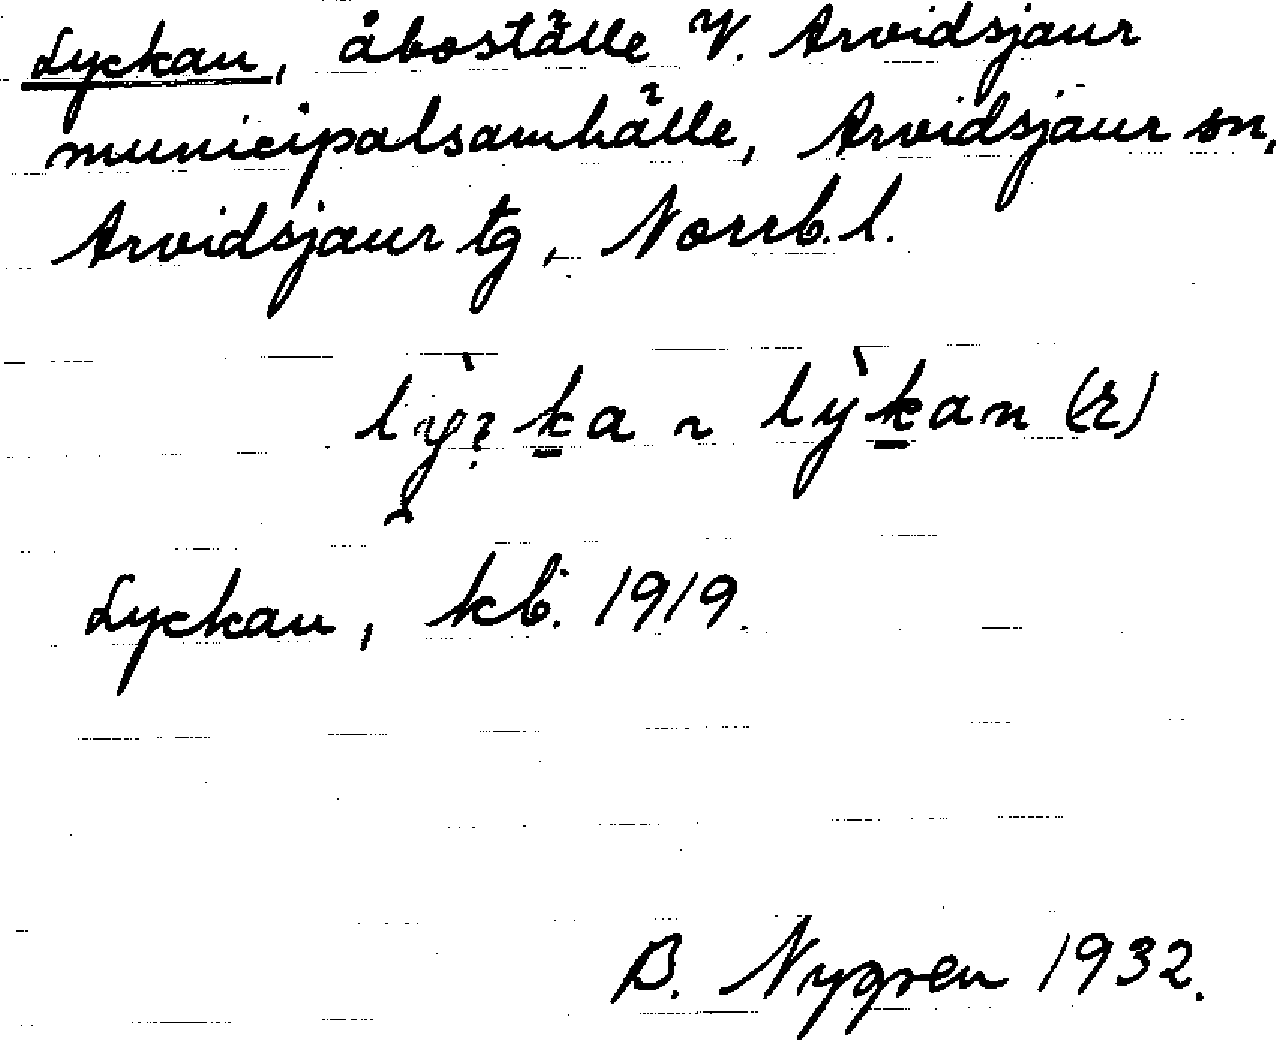 Lyckan, åboställe V. Arvidsjaur
municipalsamhälle, Arvidsjaur sn,
Arvidsjaur tg, Norrb. l.
ka ~ lỳkan (r)
Lyckan, kb. 1919.
B. Nygren 1932.